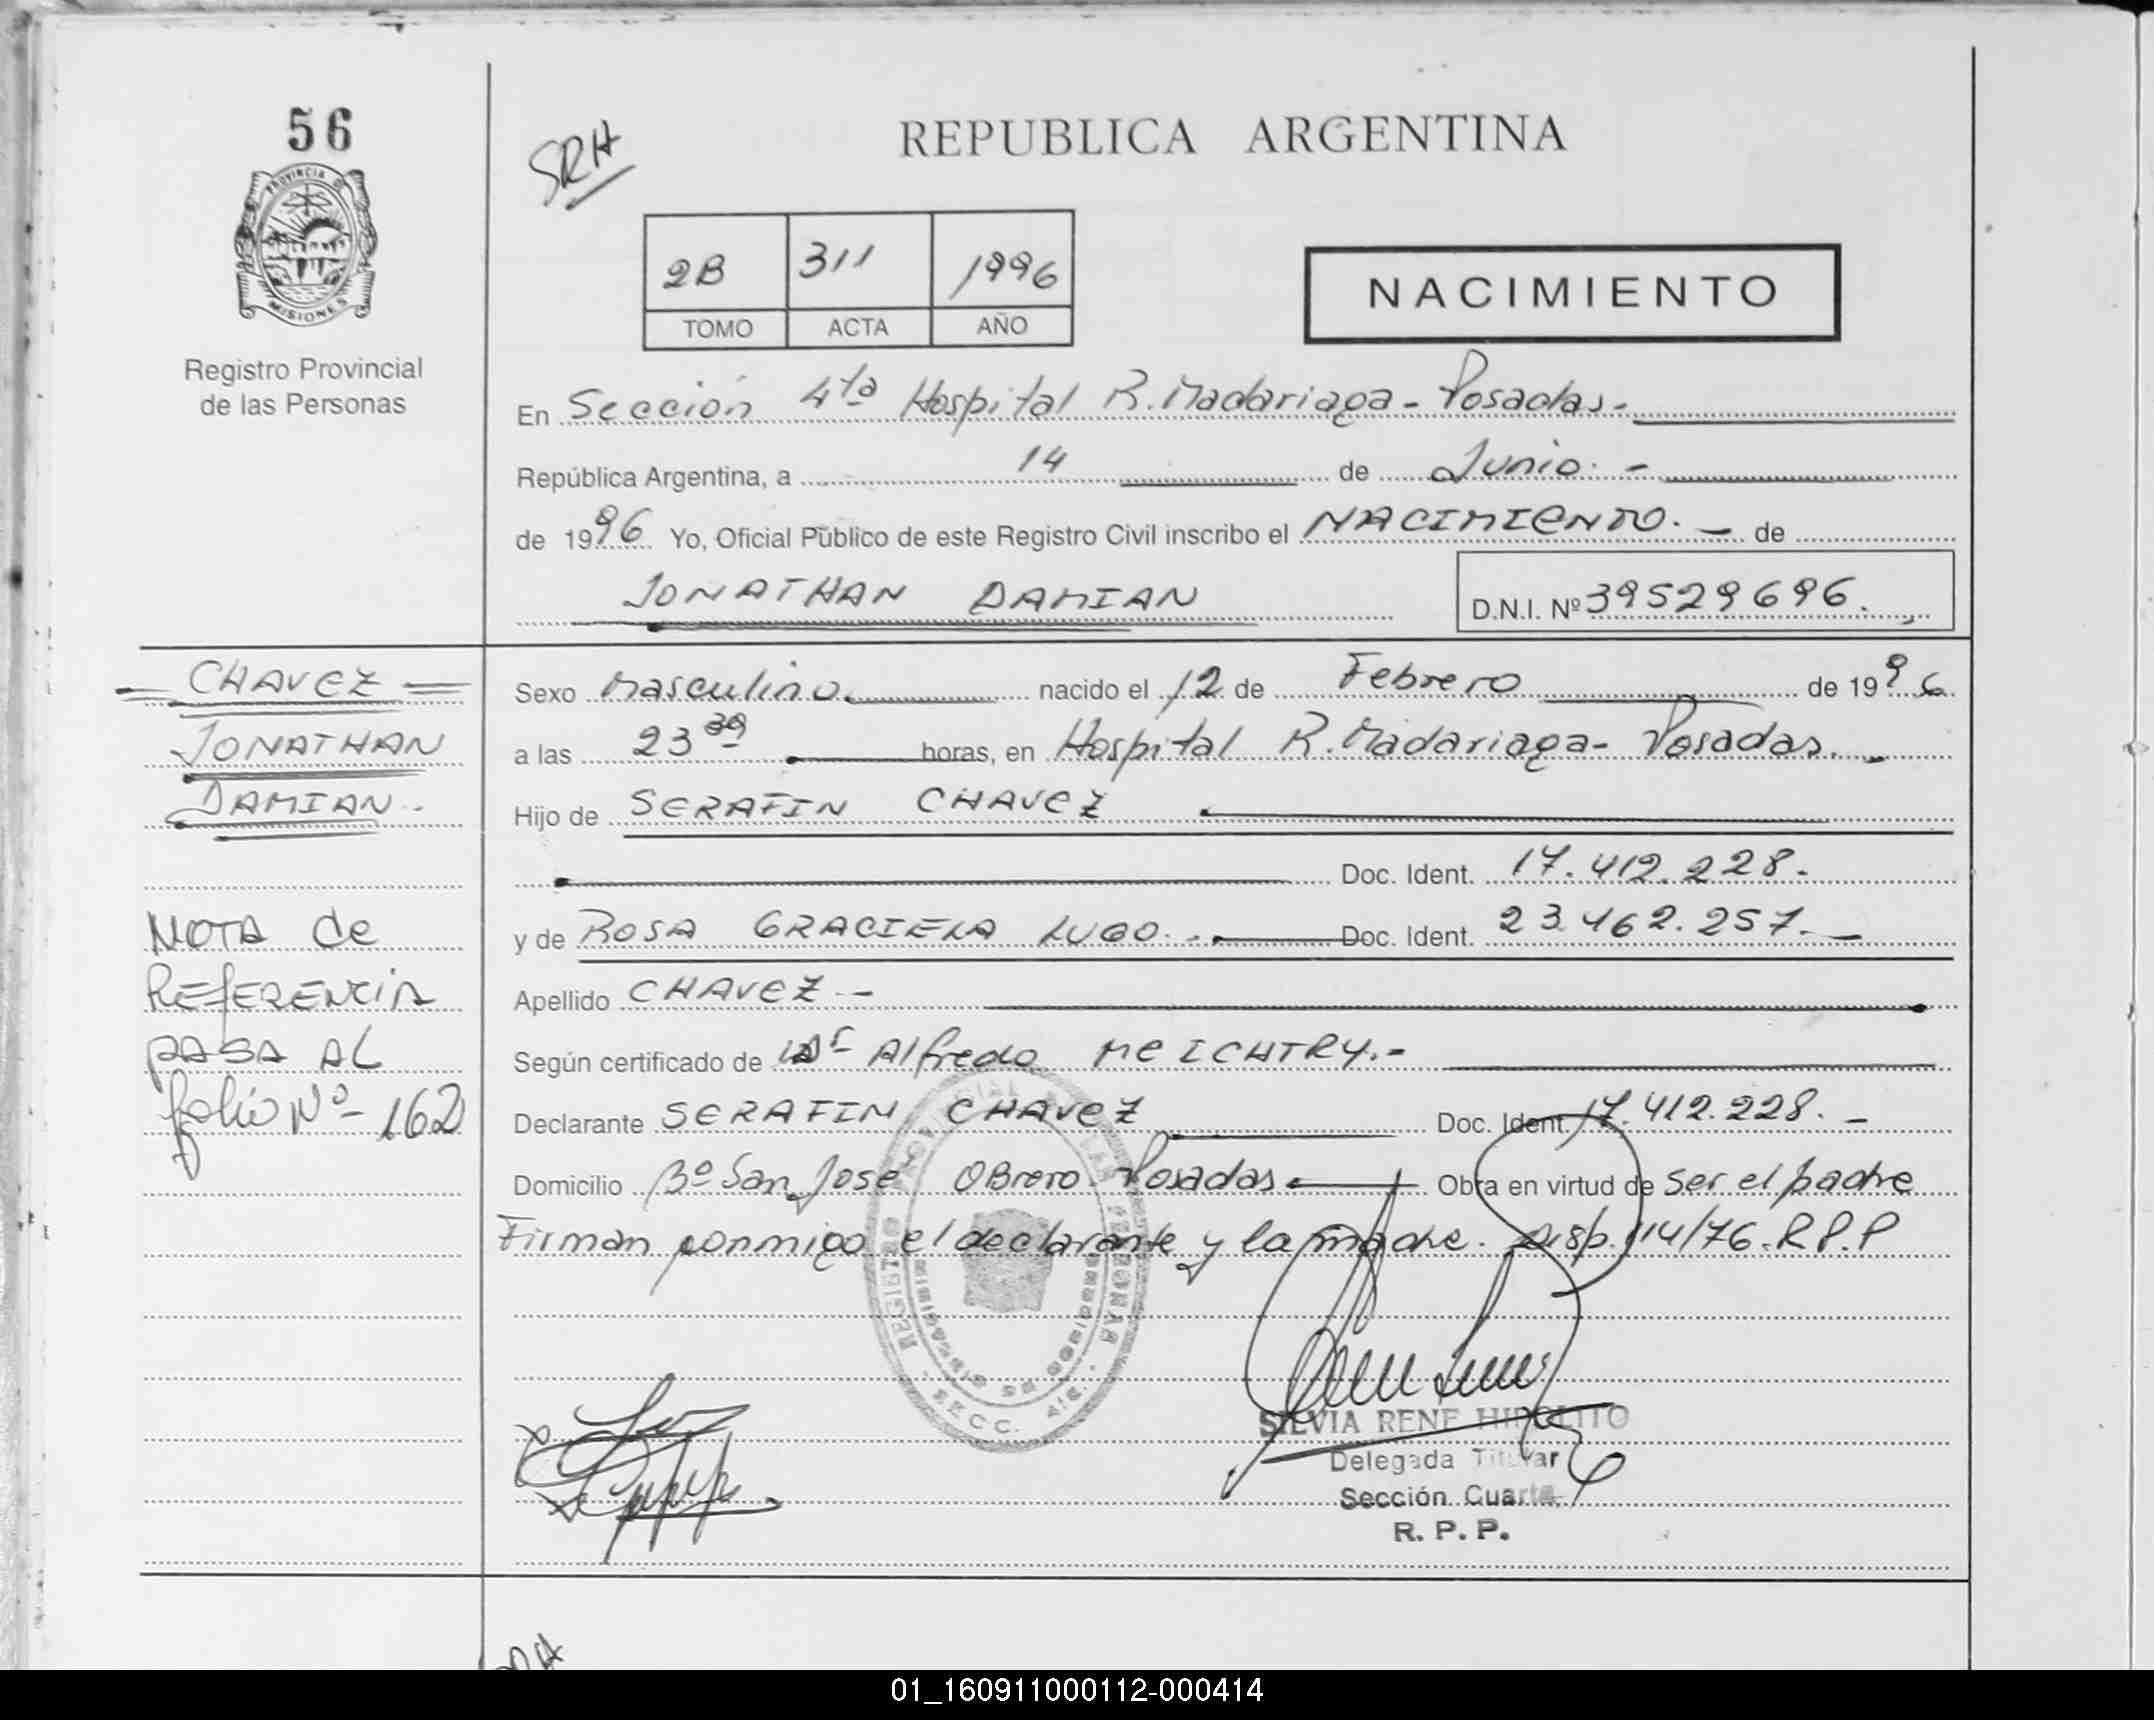 56
PROVINCIA D
MISIONES
Registro Provincial
de las Personas
SRH
REPUBLICA ARGENTINA
2B 311 1996
TOMO ACTA AÑO
NACIMIENTO
En Sección 4ta Hospital R. Madariaga - Posadas.-
República Argentina, a 14 de Junio.-
de 1996 Yo, Oficial Público de este Registro Civil inscribo el NACIMIENTO.- de
JONATHAN DAMIAN D.N.I. Nº 39529696.
CHAVEZ
JONATHAN
DAMIAN.-
NOTA de
REFERENCIA
PASA AL
folio Nº- 162
Sexo Masculino. nacido el 12 de Febrero de 1996
a las 23 30 horas, en Hospital R. Madariaga - Posadas.-
Hijo de SERAFIN CHAVEZ
Doc. Ident. 17.412.228.
y de ROSA GRACIELA LUGO.- Doc. Ident. 23.462.257.-
Apellido CHAVEZ.-
Según certificado de Dr Alfredo MEICHTRY.-
Declarante SERAFIN CHAVEZ Doc. Ident. 17.412.228.-
Domicilio Bº San José Obrero Posadas Obra en virtud de ser el padre
Firman conmigo el declarante y la madre. Disp. 114/76.R.P.P
REGISTRO PROVINCIAL DE LAS PERSONAS
SECC. 4ta.
SILVIA RENE HIPOLITO
Delegada Titular
Sección Cuarta
R. P. P.
01_160911000112-000414